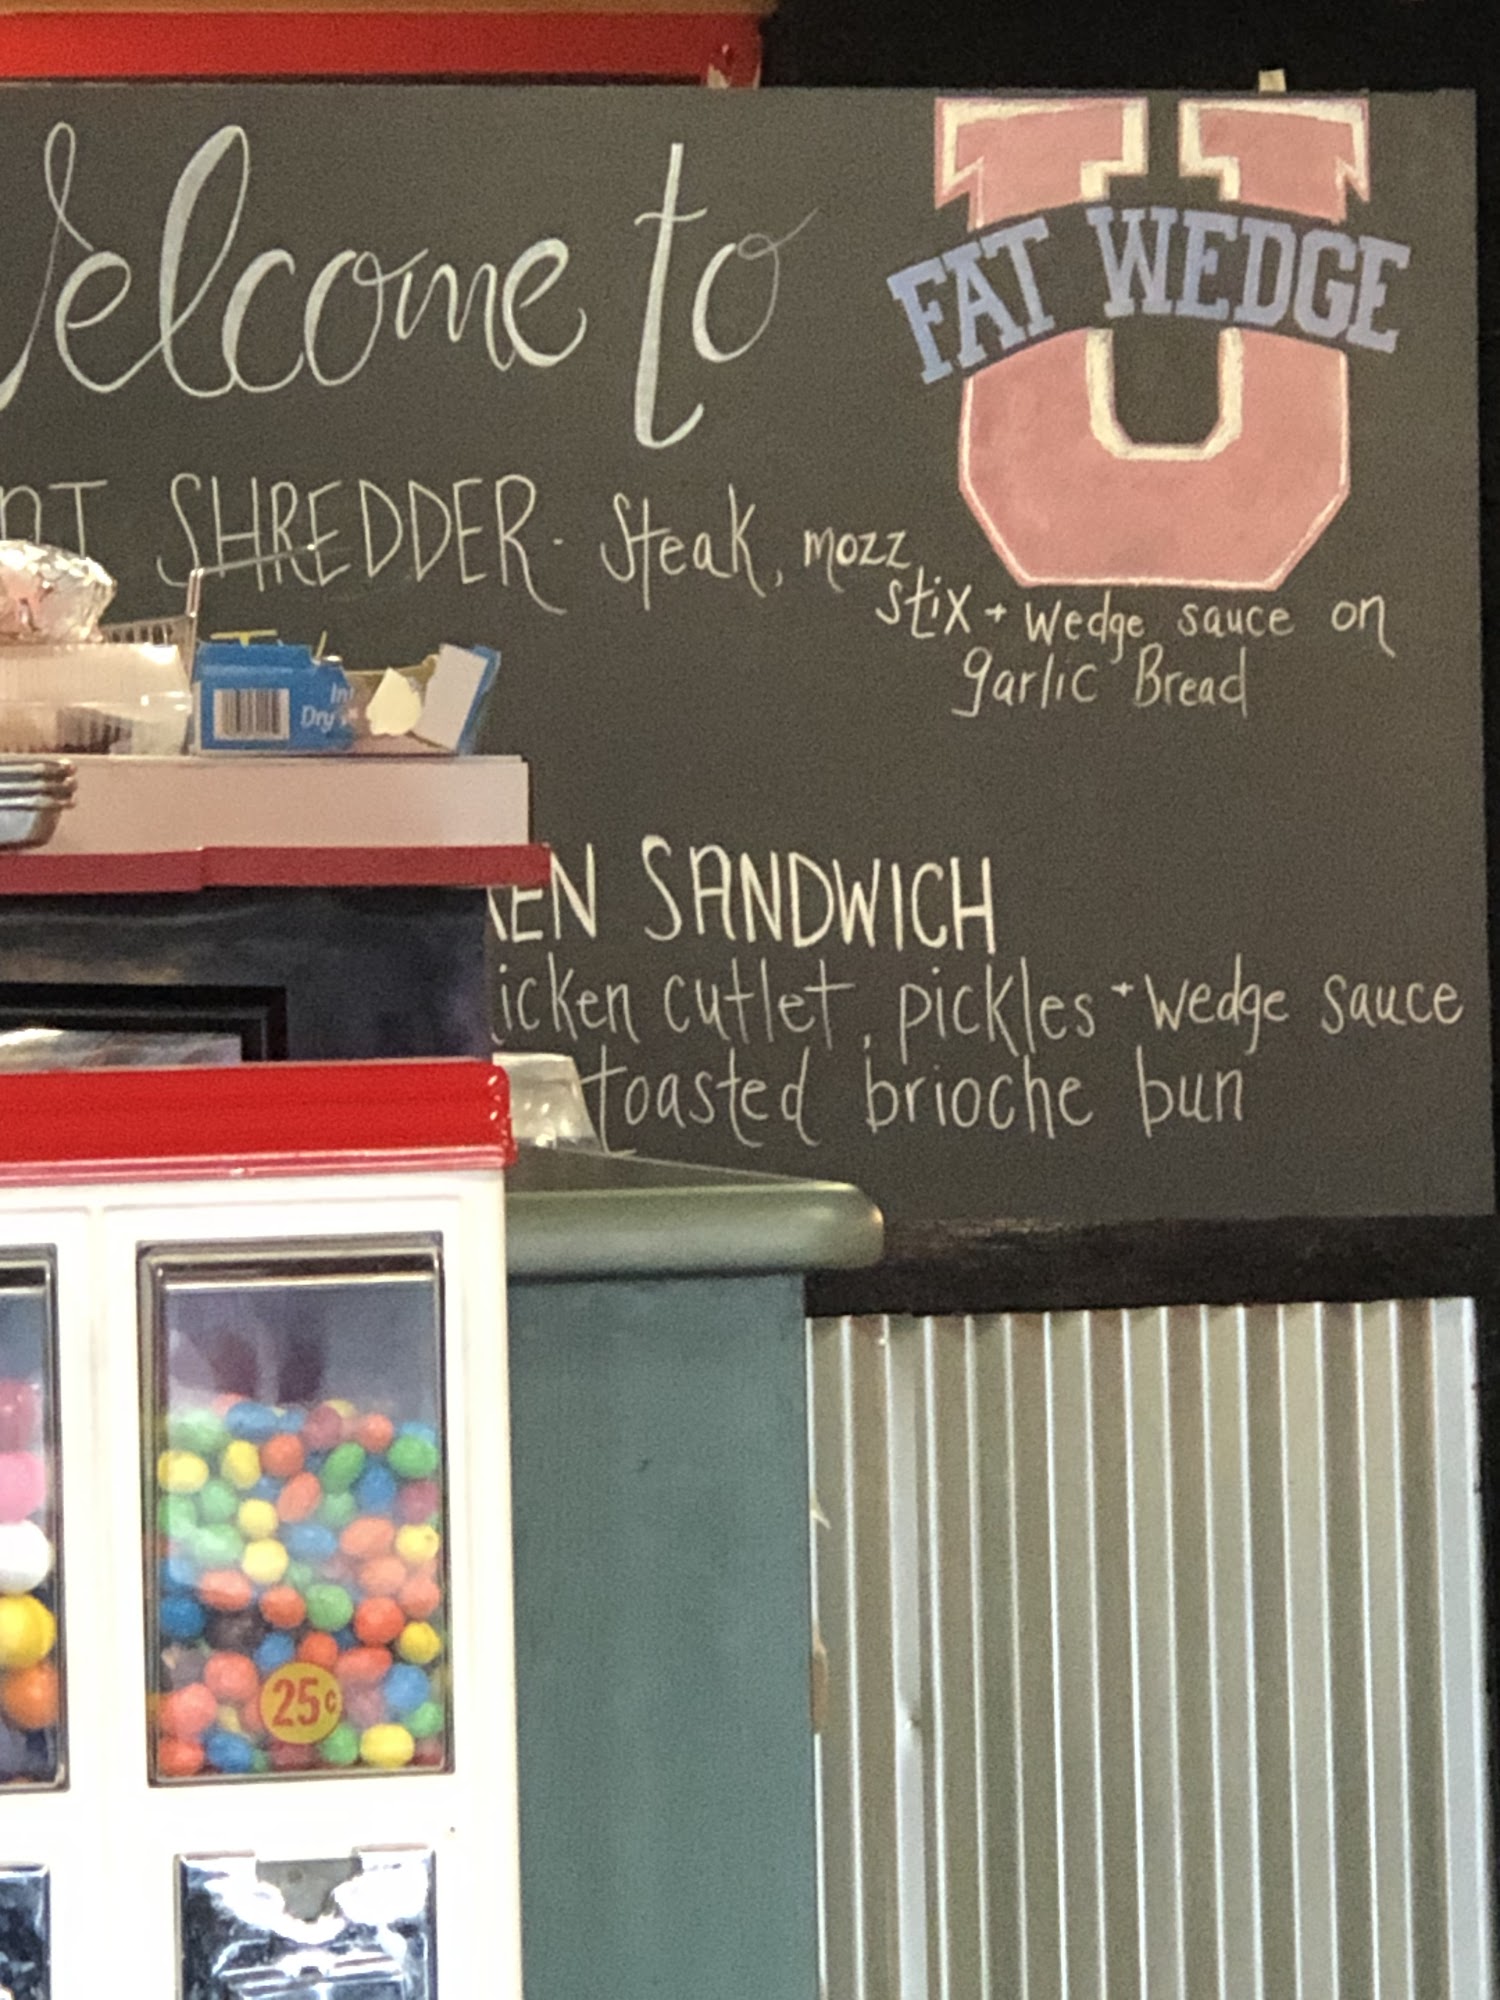 Welcome to
U
FAT WEDGE
SHREDDER - Steak, mozz
stix + wedge sauce on
garlic Bread
SANDWICH
cutlet, pickles + wedge sauce
toasted brioche bun
In
Dry
25¢